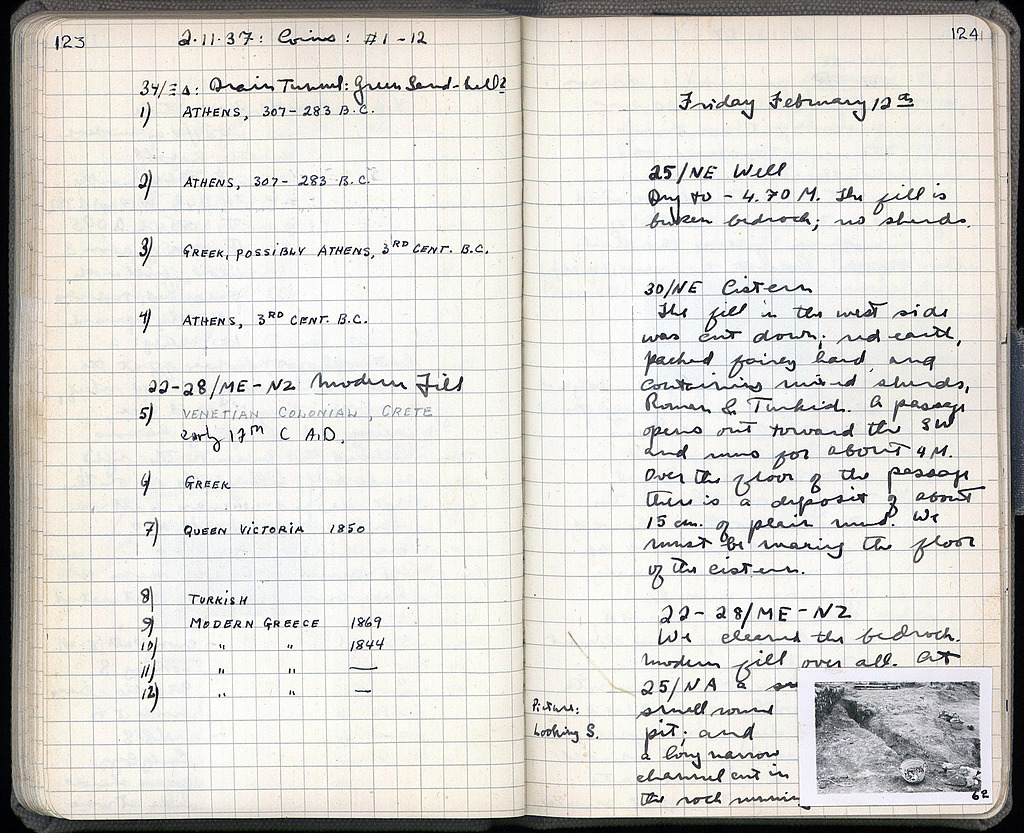 123
2.11.37: Coins: #1-12
34/ΞΔ: Drain Tunnel: Green Sand-
1) ATHENS, 307-283 B.C.
2) ATHENS, 307-283 B.C.
3) GREEK, POSSIBLY ATHENS, 3RD CENT. B.C.
4) ATHENS, 3RD CENT. B.C.
22-28/ME-NZ Modern Fill
5) VENETIAN COLONIAL, CRETE
early 17th C A.D.
6) GREEK
7) QUEEN VICTORIA 1850
8) TURKISH
9) MODERN GREECE 1869
10) " " 1844
11) " " —
12) " " —
124
Friday February 12th
25/NE Well
Dug to -4.70 M. The fill is
broken bedrock; no sherds.
30/NE Cistern
The fill in the west side
was cut down; red earth,
packed fairly hard, and
containing mixed sherds,
Roman & Turkish. A passage
opens out toward the SW
and runs for about 4 M.
Over the floor of the passage
there is a deposit of about
15 cm. of plain mud. We
must be nearing the floor
of the cistern.
22-28/ME-NZ
We cleared the bedrock.
Modern fill over all. At
25/NA a
small round
pit; and
a long narrow
channel cut in
the rock running
Picture:
Looking S.
62